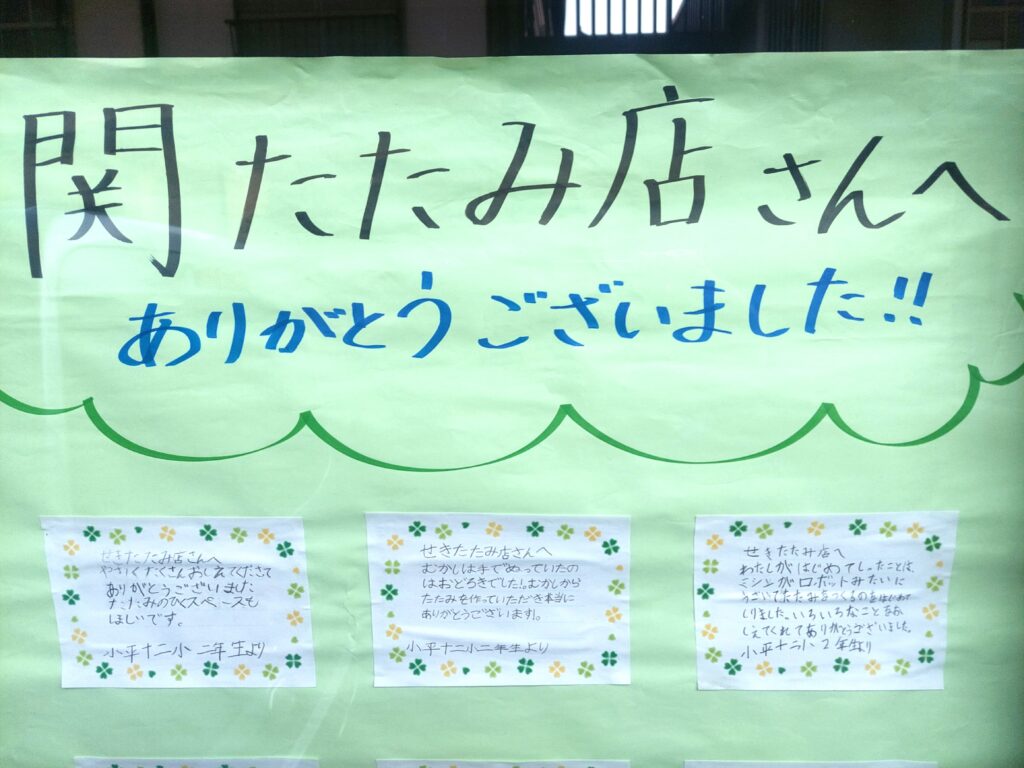 関たたみ店さんへ
ありがとうございました!!
せきたたみ店さんへ
やさしくたくさんおしえてくださて
ありがとうございました
たたみのひくスペースも
ほしいです。
小平十二小 二年生より
せきたたみ店さんへ
むかしは手でぬっていたの
はおどろきでした!。むかしから
たたみを作っていただき本当に
ありがとうございます。
小平十二小二年生より
せきたたみ店へ
わたしがはじめてしったことは、
ミシンがロボットみたいに
うごいてたたみをつくるのをはじめて
しりました。いろいろなことをお
しえてくれてありがとうございました。
小平十二小 2年生より